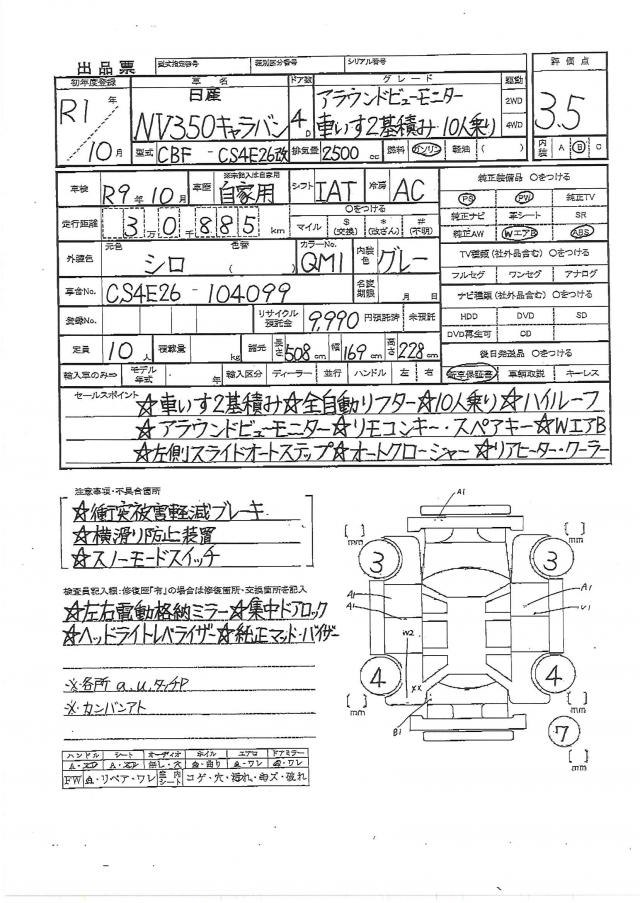 出品票 型式指定番号 類別区分番号 シリアル番号 評価点
初年度登録 車名 ドア数 グレード 駆動
R1年 日産 アラウンドビューモニター 2WD
NV350キャラバン 4D 車いす2基積み 10人乗り 4WD 3.5
10月 型式 CBF - CS4E26改 排気量 2500 cc 燃料 ガソリン 軽油 ( ) 内装 A B C
車検 R9年10月 車歴 記入は自家用 自家用 シフト IAT 冷房 AC 純正装備品 〇をつける
PS PW 純正TV
走行距離 3万0千885km 〇をつける マイル $(交換) *(改ざん) #(不明) 純正ナビ 革シート SR
純正AW WエアB ABS
外装色 元色 シロ 色替 ( ) カラーNo. QM1 内装色 グレー TV種類(社外品含む) 〇をつける
フルセグ ワンセグ アナログ
車台No. CS4E26 - 104099 名変期限 月 日 ナビ種類(社外品含む) 〇をつける
登録No. リサイクル預託金 9,990 円預託済 未預託 HDD DVD SD
DVD再生可 CD
定員 10人 積載量 kg 諸元 長さ 508cm 幅 169cm 高さ 228cm 後日発送品 〇をつける
輸入車のみ⇨ モデル年式 年 輸入区分 ディーラー 並行 ハンドル 左 右 新車保証書 車輌取説 キーレス
セールスポイント ☆車いす2基積み☆全自動リフター☆10人乗り☆ハイルーフ
☆アラウンドビューモニター☆リモコンキー・スペアキー☆WエアB
☆左側スライドオートステップ☆オートクロージャー☆リアヒーター・クーラー
注意事項・不具合箇所
☆衝突被害軽減ブレーキ
☆横滑り防止装置
☆スノーモードスイッチ
検査員記入欄:修復歴「有」の場合は修復箇所・交換箇所を記入
☆左右電動格納ミラー☆集中ドアロック
☆ヘッドライトレベライザー☆純正マット・バイザー
※各所a,u,タッチP
※カンバンアト
ハンドル シート オーディオ ホイル エアロ ドアミラー
A・スレ A・スレ 無し・穴 曲り A・ワレ ワレ
FW A・リペア・ワレ 室内シート コゲ・穴・汚れ・キズ・破れ
A1
[ ] mm 3 3 [ ] mm
A1 A1
A1 U1
W2
XX
[ ] mm 4 4 [ ] mm
B1
7
[ ] mm